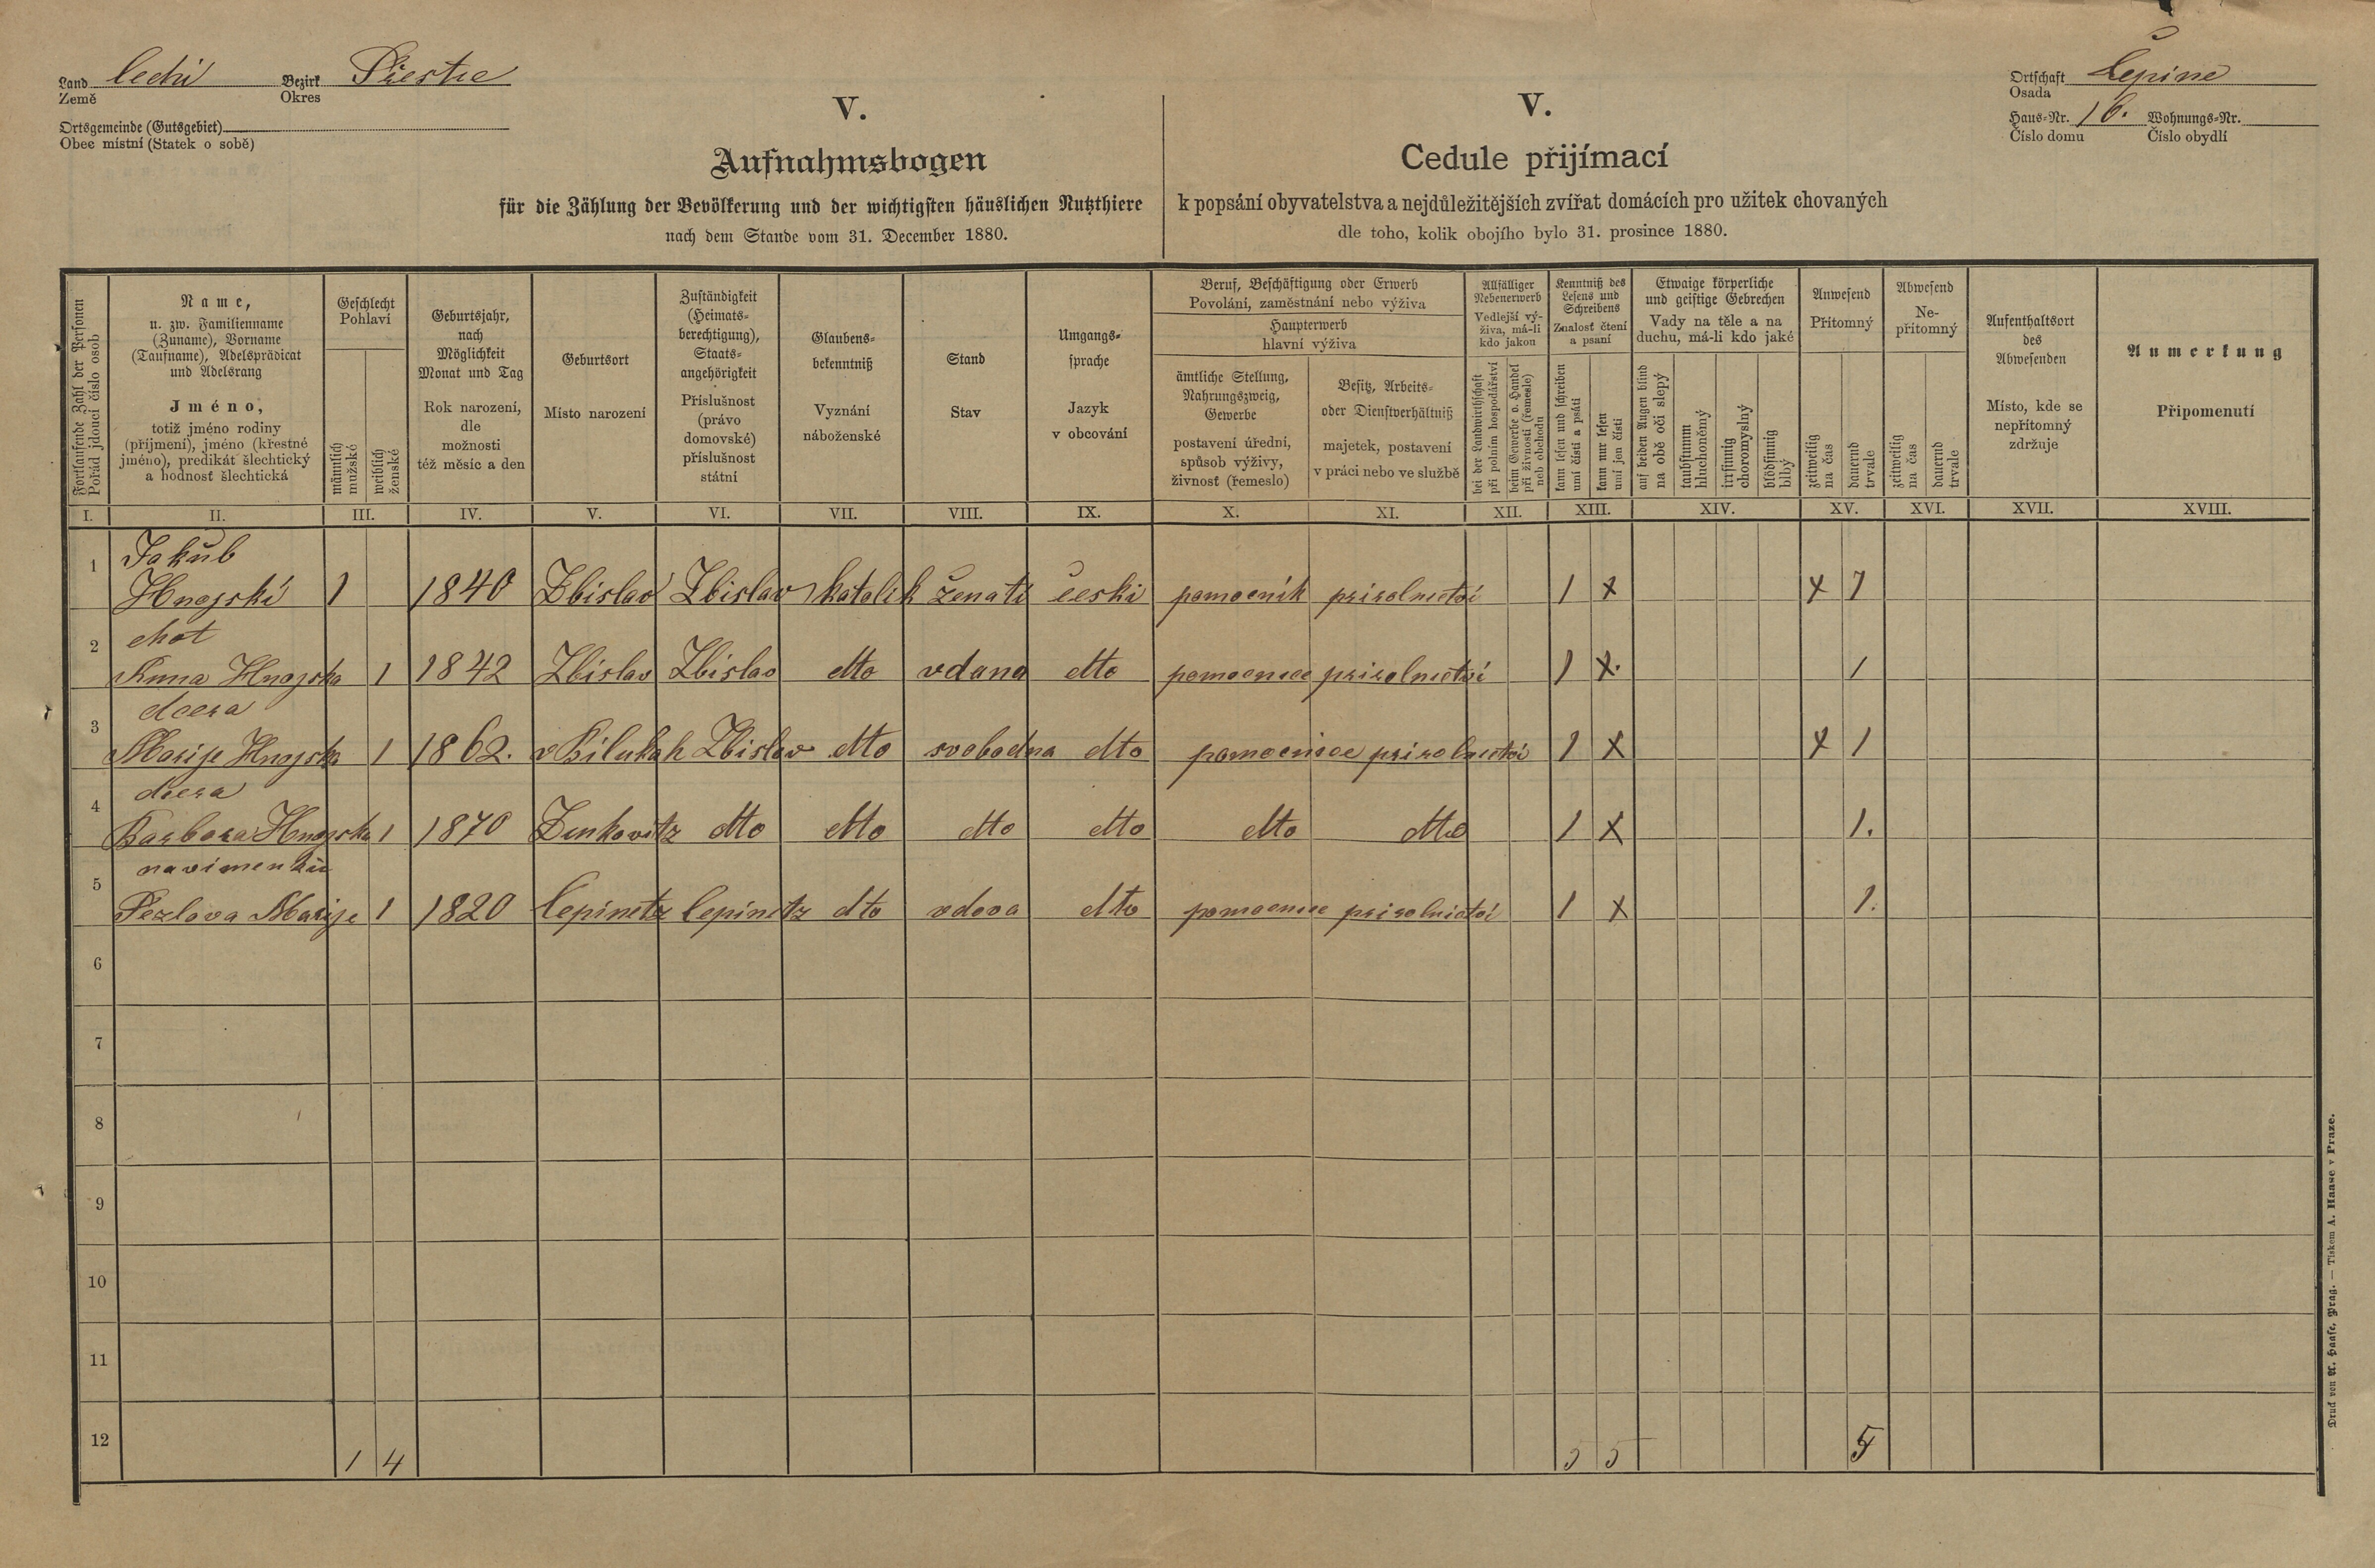 Land Čechi Bezirk Přestice
Země Okres
Ortsgemeinde (Gutsgebiet)
Obec místní (Statek o sobě)
Ortschaft Čepine
Osada
Haus-Nr. 16. Wohnungs-Nr.
Číslo domu Číslo obydlí
V.
Aufnahmsbogen
für die Zählung der Bevölkerung und der wichtigsten häuslichen Nutzthiere
nach dem Stande vom 31. December 1880.
V.
Cedule přijímací
k popsání obyvatelstva a nejdůležitějších zvířat domácích pro užitek chovaných
dle toho, kolik obojího bylo 31. prosince 1880.
Fortlaufende Zahl der Personen
Pořád jdoucí číslo osob
Name,
u. zw. Familienname
(Zuname), Vorname
(Taufname), Adelsprädicat
und Adelsrang
Jméno,
totiž jméno rodiny
(příjmení), jméno (křestné
jméno), predikát šlechtický
a hodnosť šlechtická
Geschlecht
Pohlaví
männlich
mužské
weiblich
ženské
Geburtsjahr,
nach
Möglichkeit
Monat und Tag
Rok narození,
dle
možnosti
též měsíc a den
Geburtsort
Místo narození
Zuständigkeit
(Heimats-
berechtigung),
Staats-
angehörigkeit
Příslušnost
(právo
domovské)
příslušnost
státní
Glaubens-
bekenntniß
Vyznání
náboženské
Stand
Stav
Umgangs-
sprache
Jazyk
v obcování
Beruf, Beschäftigung oder Erwerb
Povolání, zaměstnání nebo výživa
Haupterwerb
hlavní výživa
ämtliche Stellung,
Nahrungszweig,
Gewerbe
postavení úřední,
spůsob výživy,
živnosť (řemeslo)
Besitz, Arbeits-
oder Dienstverhältniß
majetek, postavení
v práci nebo ve službě
Allfälliger
Nebenerwerb
Vedlejší vý-
živa, má-li
kdo jakou
bei der Landwirthschaft
při polním hospodářství
beim Gewerbe o. Handel
při živnosti (řemesle)
neb obchodu
Kenntniß des
Lesens und
Schreibens
Znalosť čtení
a psaní
kann lesen und schreiben
umí čísti a psáti
kann nur lesen
umí jen čísti
Etwaige körperliche
und geistige Gebrechen
Vady na těle a na
duchu, má-li kdo jaké
auf beiden Augen blind
na obě oči slepý
taubstumm
hluchoněmý
irrsinnig
choromyslný
blödsinnig
blbý
Anwesend
Přítomný
zeitweilig
na čas
dauernd
trvale
Abwesend
Ne-
přítomný
zeitweilig
na čas
dauernd
trvale
Aufenthaltsort
des
Abwesenden
Místo, kde se
nepřítomný
zdržuje
Anmerkung
Připomenutí
I. II. III. IV. V. VI. VII. VIII. IX. X. XI. XII. XIII. XIV. XV. XVI. XVII. XVIII.
1 Jakub
Hnojski 1 1840 Zbislav Zbislav katolik ženati česki pomocnik prirolnictvi 1 x x 1
2 chot
Anna Hnojska 1 1842 Zbislav Zbislav dto vdana dto pomocnice prirolnictvi 1 x. 1
3 dcera
Marije Hnojska 1 1862. v Bilukah Zbislav dto svobodna dto pomocnice prirolnictvi 1 x x 1
4 dcera
Barbora Hnojska 1 1870 Zinkovitz dto dto dto dto dto dto 1 x 1.
5 na vimenku
Pezlova Marije 1 1820 Cepinetz Cepinetz dto vdova dto pomocnice prirolnictvi 1 x 1.
6
7
8
9
10
11
12 1 4 5 5 5
Druck von A. Haase, Prag. — Tiskem A. Haase v Praze.